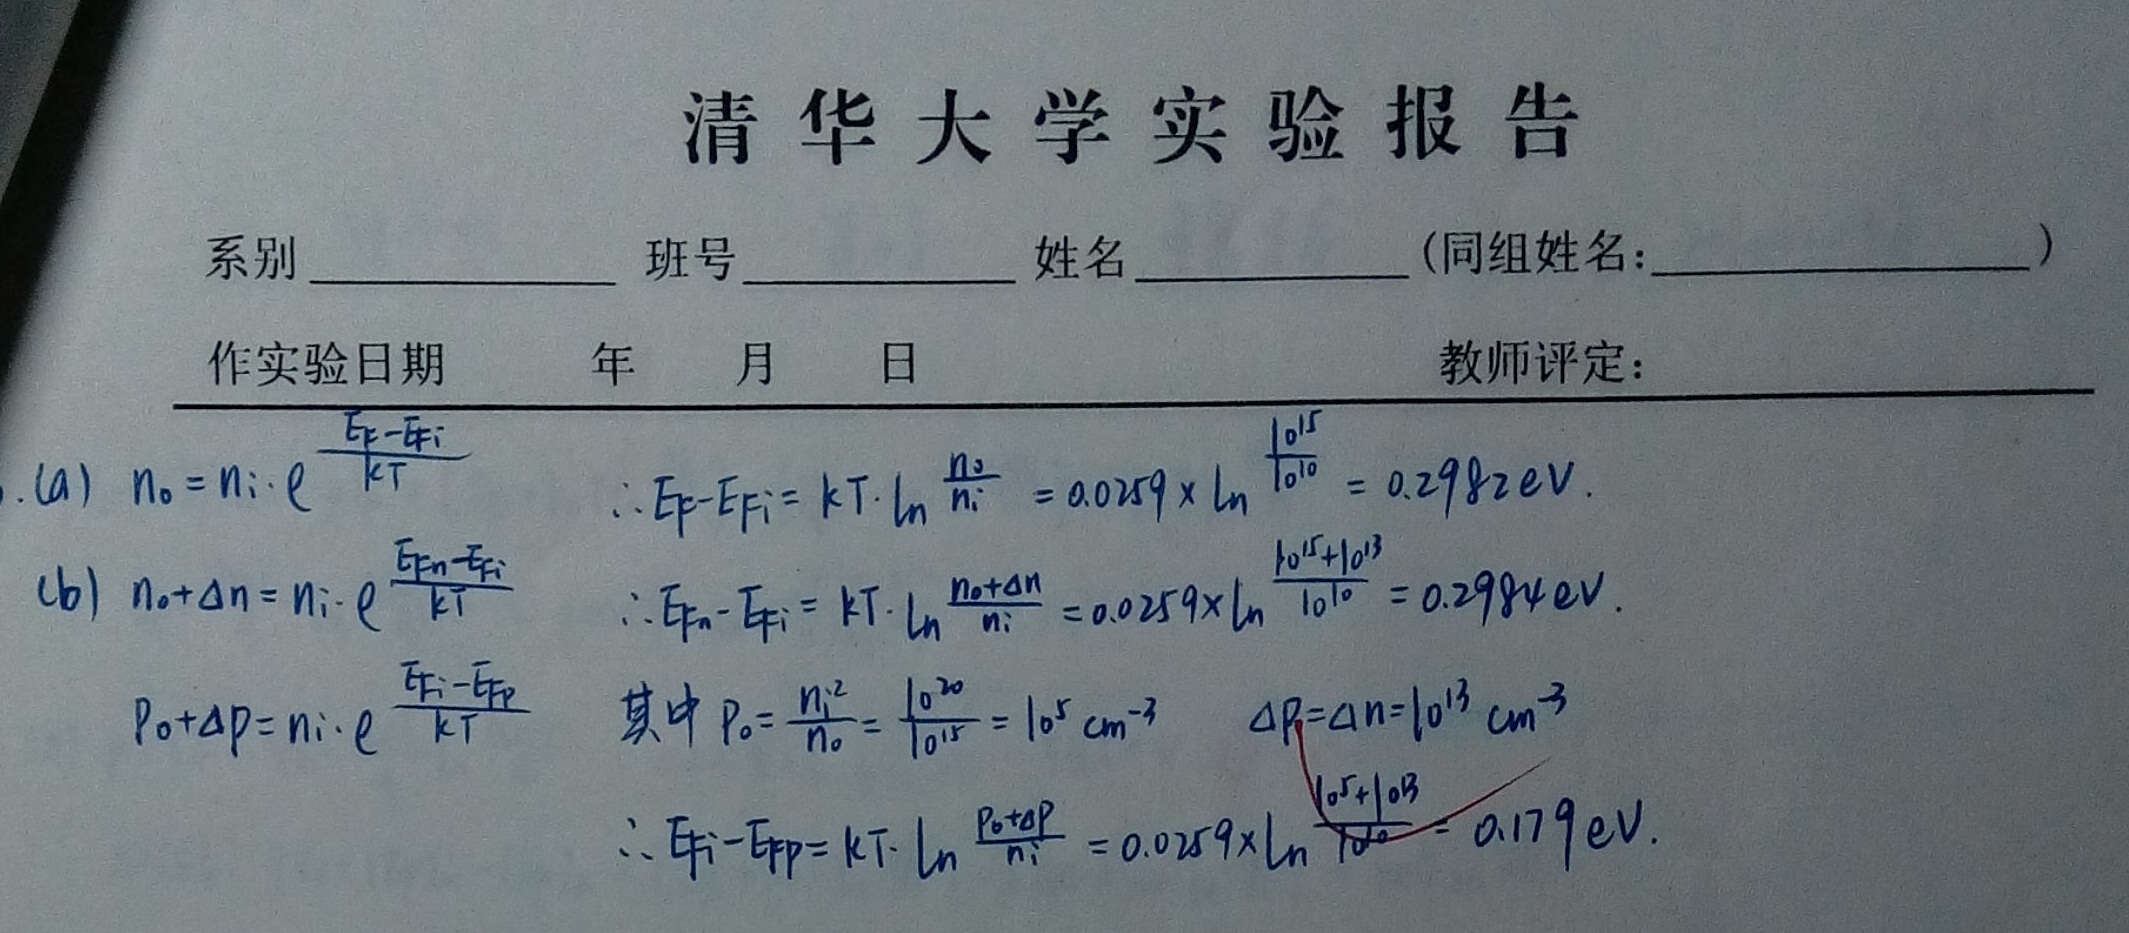 清华大学实验报告
系别 班号 姓名 (同组姓名: )
作实验日期 年 月 日 教师评定:
.(a) n₀ = nᵢ·e^((E_F-E_Fi)/kT) ∴ E_F-E_Fi = kT·ln(n₀/nᵢ) = 0.0259 × ln(10¹⁵/10¹⁰) = 0.2982eV.
(b) n₀+Δn = nᵢ·e^((E_Fn-E_Fi)/kT) ∴ E_Fn-E_Fi = kT·ln((n₀+Δn)/nᵢ) = 0.0259×ln((10¹⁵+10¹³)/10¹⁰) = 0.2984eV.
P₀+Δp = nᵢ·e^((E_Fi-E_Fp)/kT) 其中 P₀ = nᵢ²/n₀ = 10²⁰/10¹⁵ = 10⁵ cm⁻³ Δp=Δn=10¹³ cm⁻³
∴ E_Fi-E_Fp = kT·ln((P₀+Δp)/nᵢ) = 0.0259×ln((10⁵+10¹³)/10¹⁰) = 0.179eV.